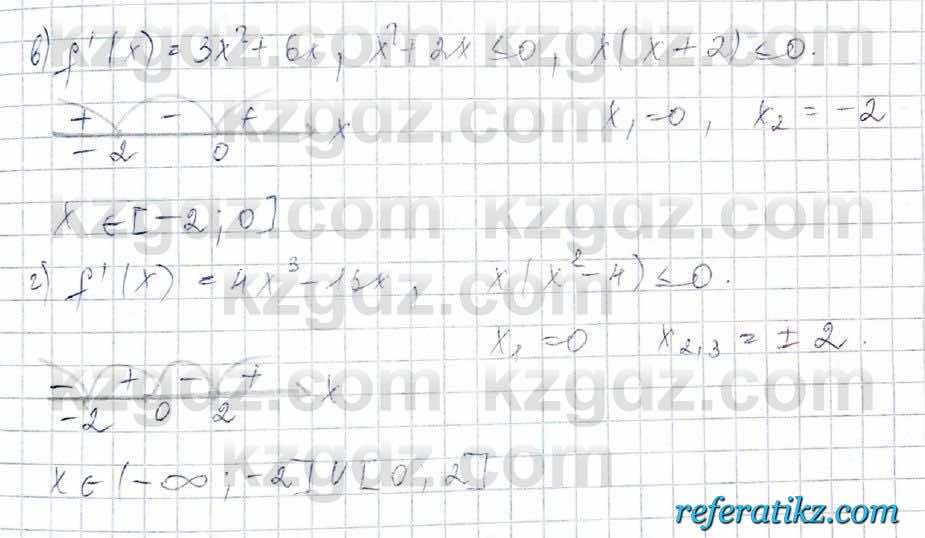 в) f'(x) = 3x²+ 6x, x²+ 2x ≤0, x(x+2) ≤0.
+ - + x
-2 0
x₁=0, x₂ = -2
x ∈[-2; 0]
г) f'(x) = 4x³-16x, x(x²-4) ≤0.
x₁ =0 x₂,₃ = ± 2.
- + - + x
-2 0 2
x∈(-∞; -2]U[0; 2]
kzgdz.com kzgdz.com
kzgdz.com kzgdz.com
kzgdz.com kzgdz.com
kzgdz.com kzgdz.com
kzgdz.com kzgdz.com
kzgdz.com
referatikz.com